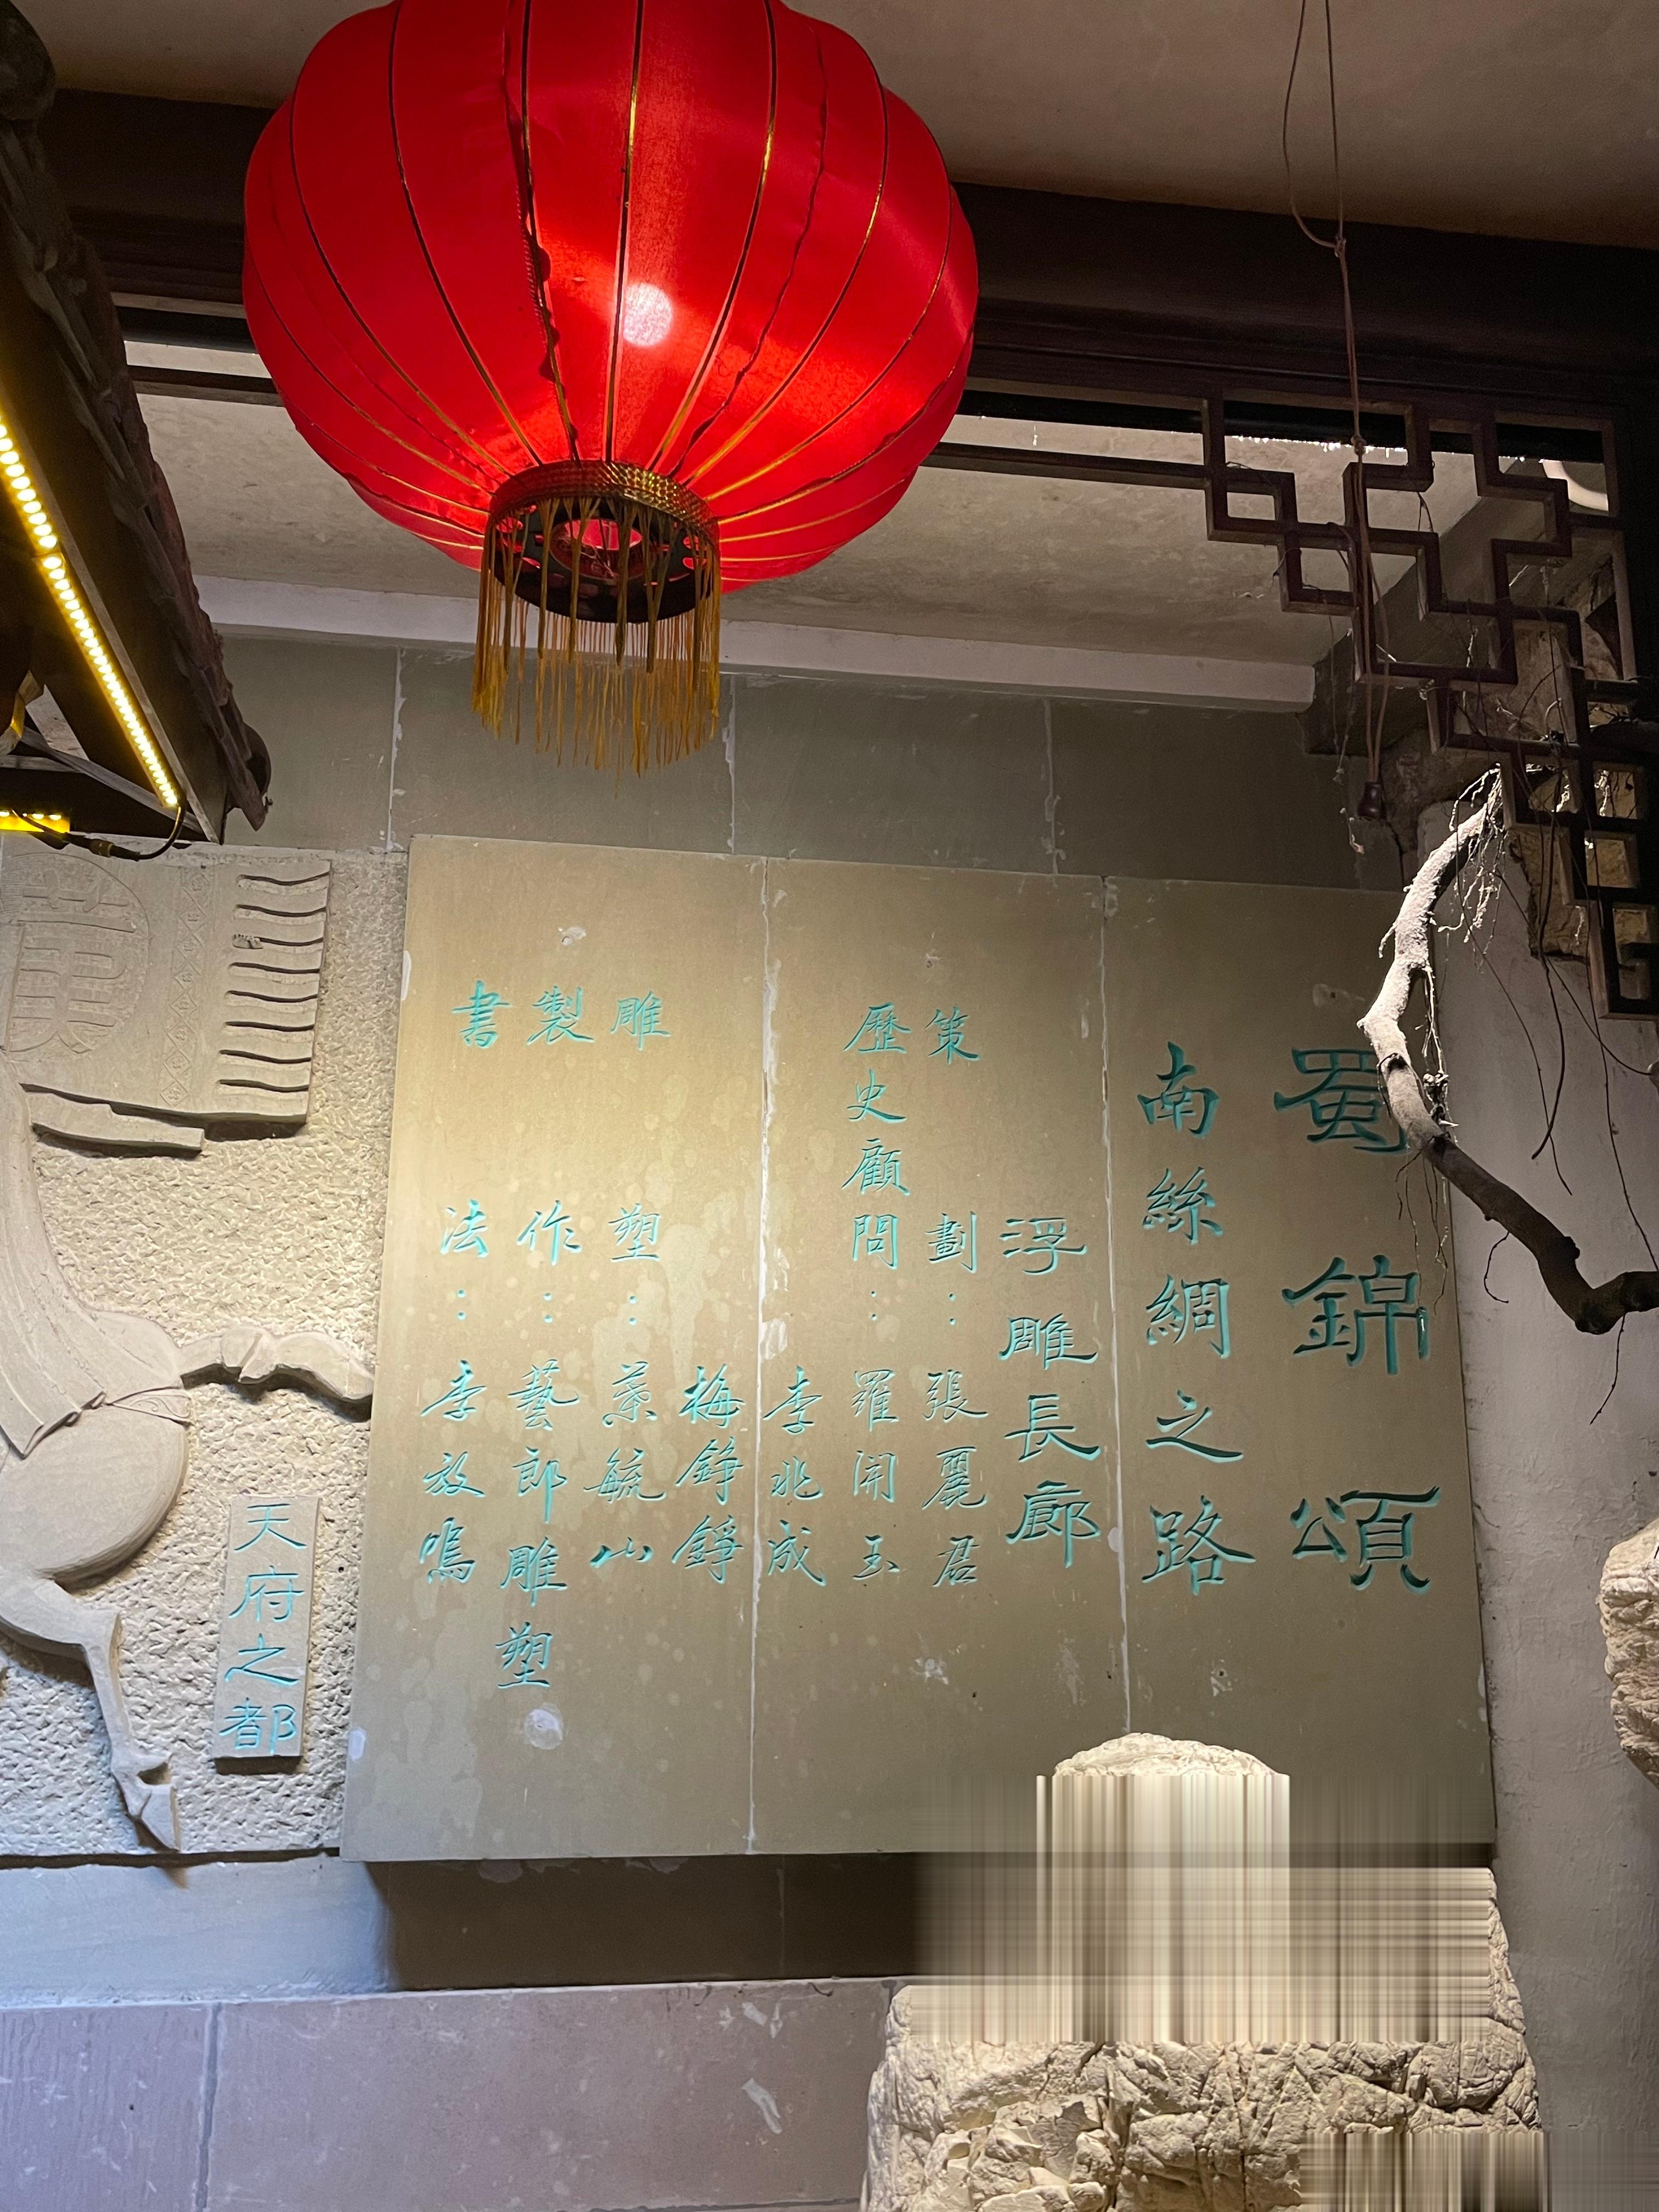 蜀錦頌
南絲綢之路
浮雕長廊
策劃：張麗君
歷史顧問：羅開玉
李兆成
雕塑：葉毓山
梅錚錚
製作：藝郎雕塑
書法：李放鳴
天府之都